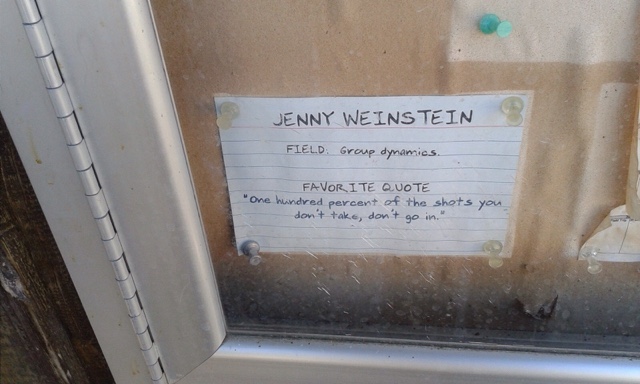 JENNY WEINSTEIN
FIELD: Group dynamics.
FAVORITE QUOTE
"One hundred percent of the shots you
don't take, don't go in."